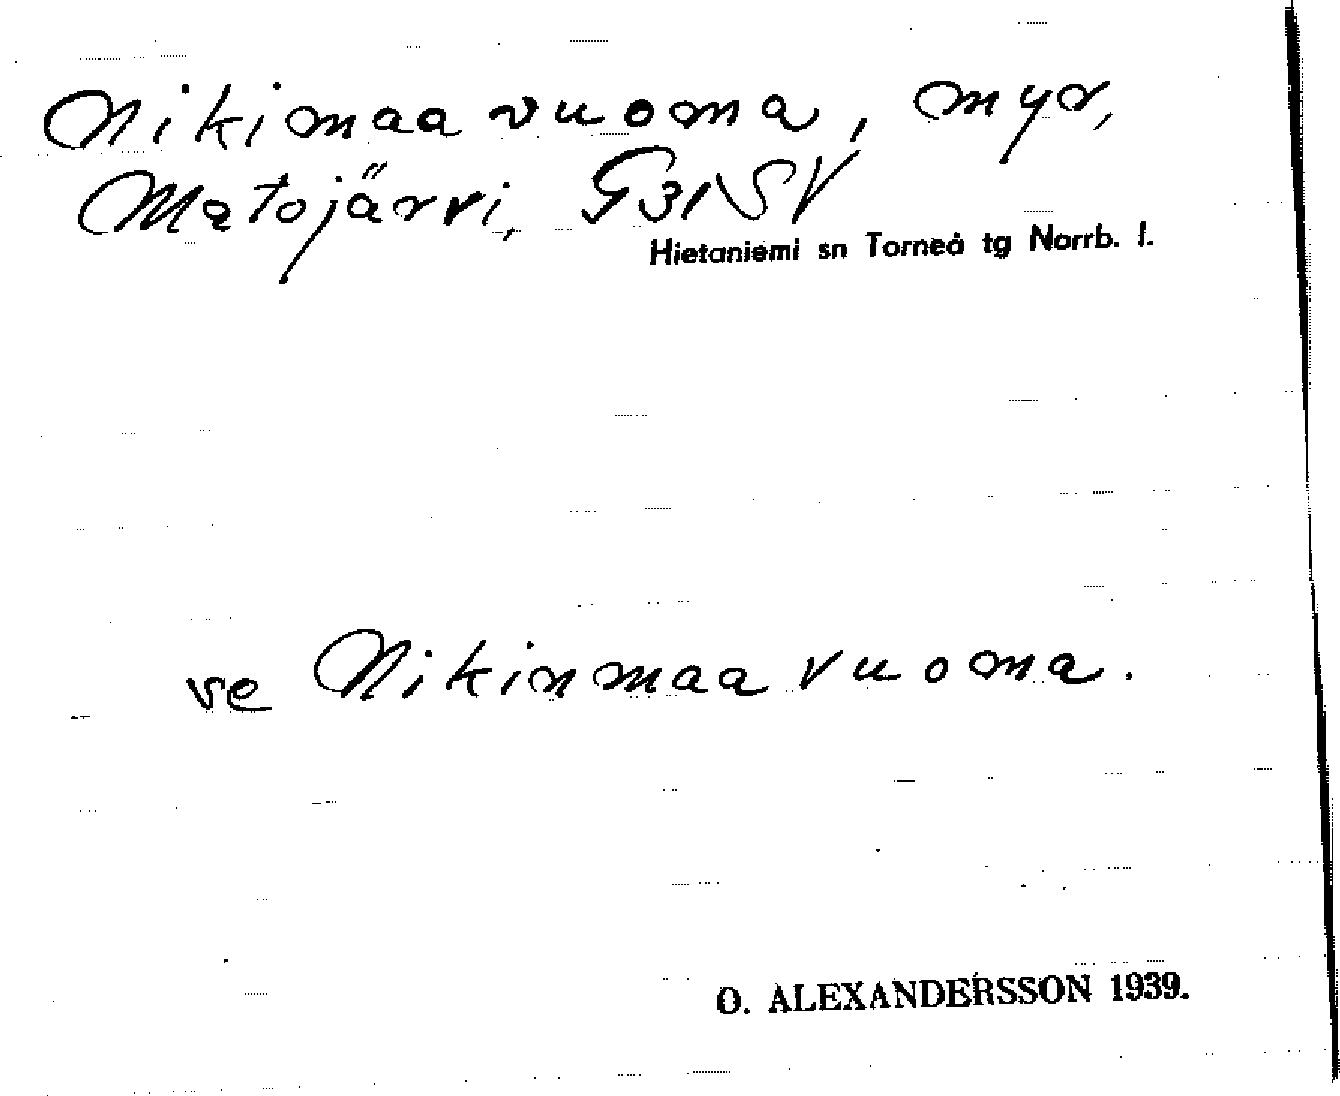 Nikimaa vuoma, myr,
Matojärvi, G31SV
Hietaniemi sn Torneå tg Norrb. l.
se Nikinmaa vuoma.
O. ALEXANDERSSON 1939.